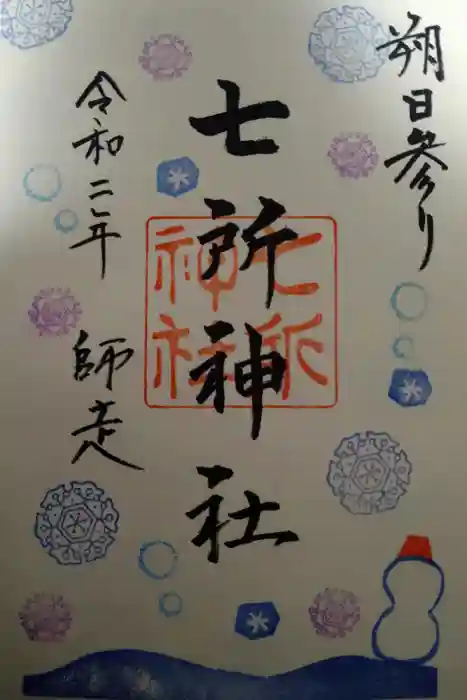 朔日参り
七所神社
七所
神社
令和二年
師走